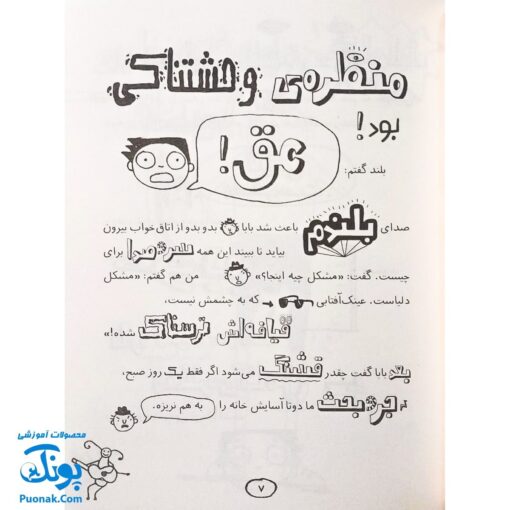 منظره‌ی وحشتناکی
بود!
بلند گفتم:
عق!
صدای بلندم باعث شد بابا بدو بدو از اتاق خواب بیرون
بیاید تا ببیند این همه سروصدا برای
چیست. گفت: «مشکل چیه اینجا؟» من هم گفتم: «مشکل
دلیاست. عینک‌آفتابی که به چشمش نیست،
قیافه‌اش ترسناک شده!»
بعد بابا گفت چقدر قشنگ می‌شود اگر فقط یک روز صبح،
جروبحث ما دوتا آسایش خانه را به هم نریزه.
۷
محصولات آموزشی
پونک
Puonak.Com